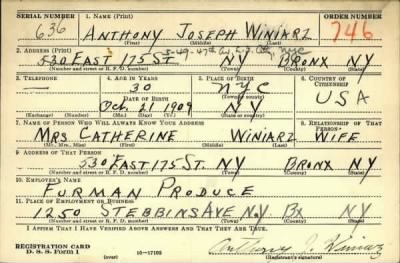 SERIAL NUMBER 1. NAME (Print) ORDER NUMBER
636 ANTHONY JOSEPH WINIARZ 746
(First) (Middle) (Last)
2. ADDRESS (Print) NYC
530 EAST 175 ST. NY BRONX NY
(Number and street or R. F. D. number) (Town) (County) (State)
3. TELEPHONE 4. AGE IN YEARS 5. PLACE OF BIRTH 6. COUNTRY OF CITIZENSHIP
— 30 NYC
DATE OF BIRTH (Town or county) USA
Oct 21 1909 NY
(Exchange) (Number) (Mo.) (Day) (Yr.) (State or country)
7. NAME OF PERSON WHO WILL ALWAYS KNOW YOUR ADDRESS 8. RELATIONSHIP OF THAT PERSON
MRS CATHERINE WINIARZ WIFE
(Mr., Mrs., Miss) (First) (Middle) (Last)
9. ADDRESS OF THAT PERSON
530 EAST 175 ST. NY BRONX NY
(Number and street or R. F. D. number) (Town) (County) (State)
10. EMPLOYER'S NAME
FURMAN PRODUCE
11. PLACE OF EMPLOYMENT OR BUSINESS
1250 STEBBINS AVE N.Y. BX NY
(Number and street or R. F. D. number) (Town) (County) (State)
I AFFIRM THAT I HAVE VERIFIED ABOVE ANSWERS AND THAT THEY ARE TRUE.
REGISTRATION CARD
D. S. S. Form 1 (over) 16—17105 Anthony J. Winiarz